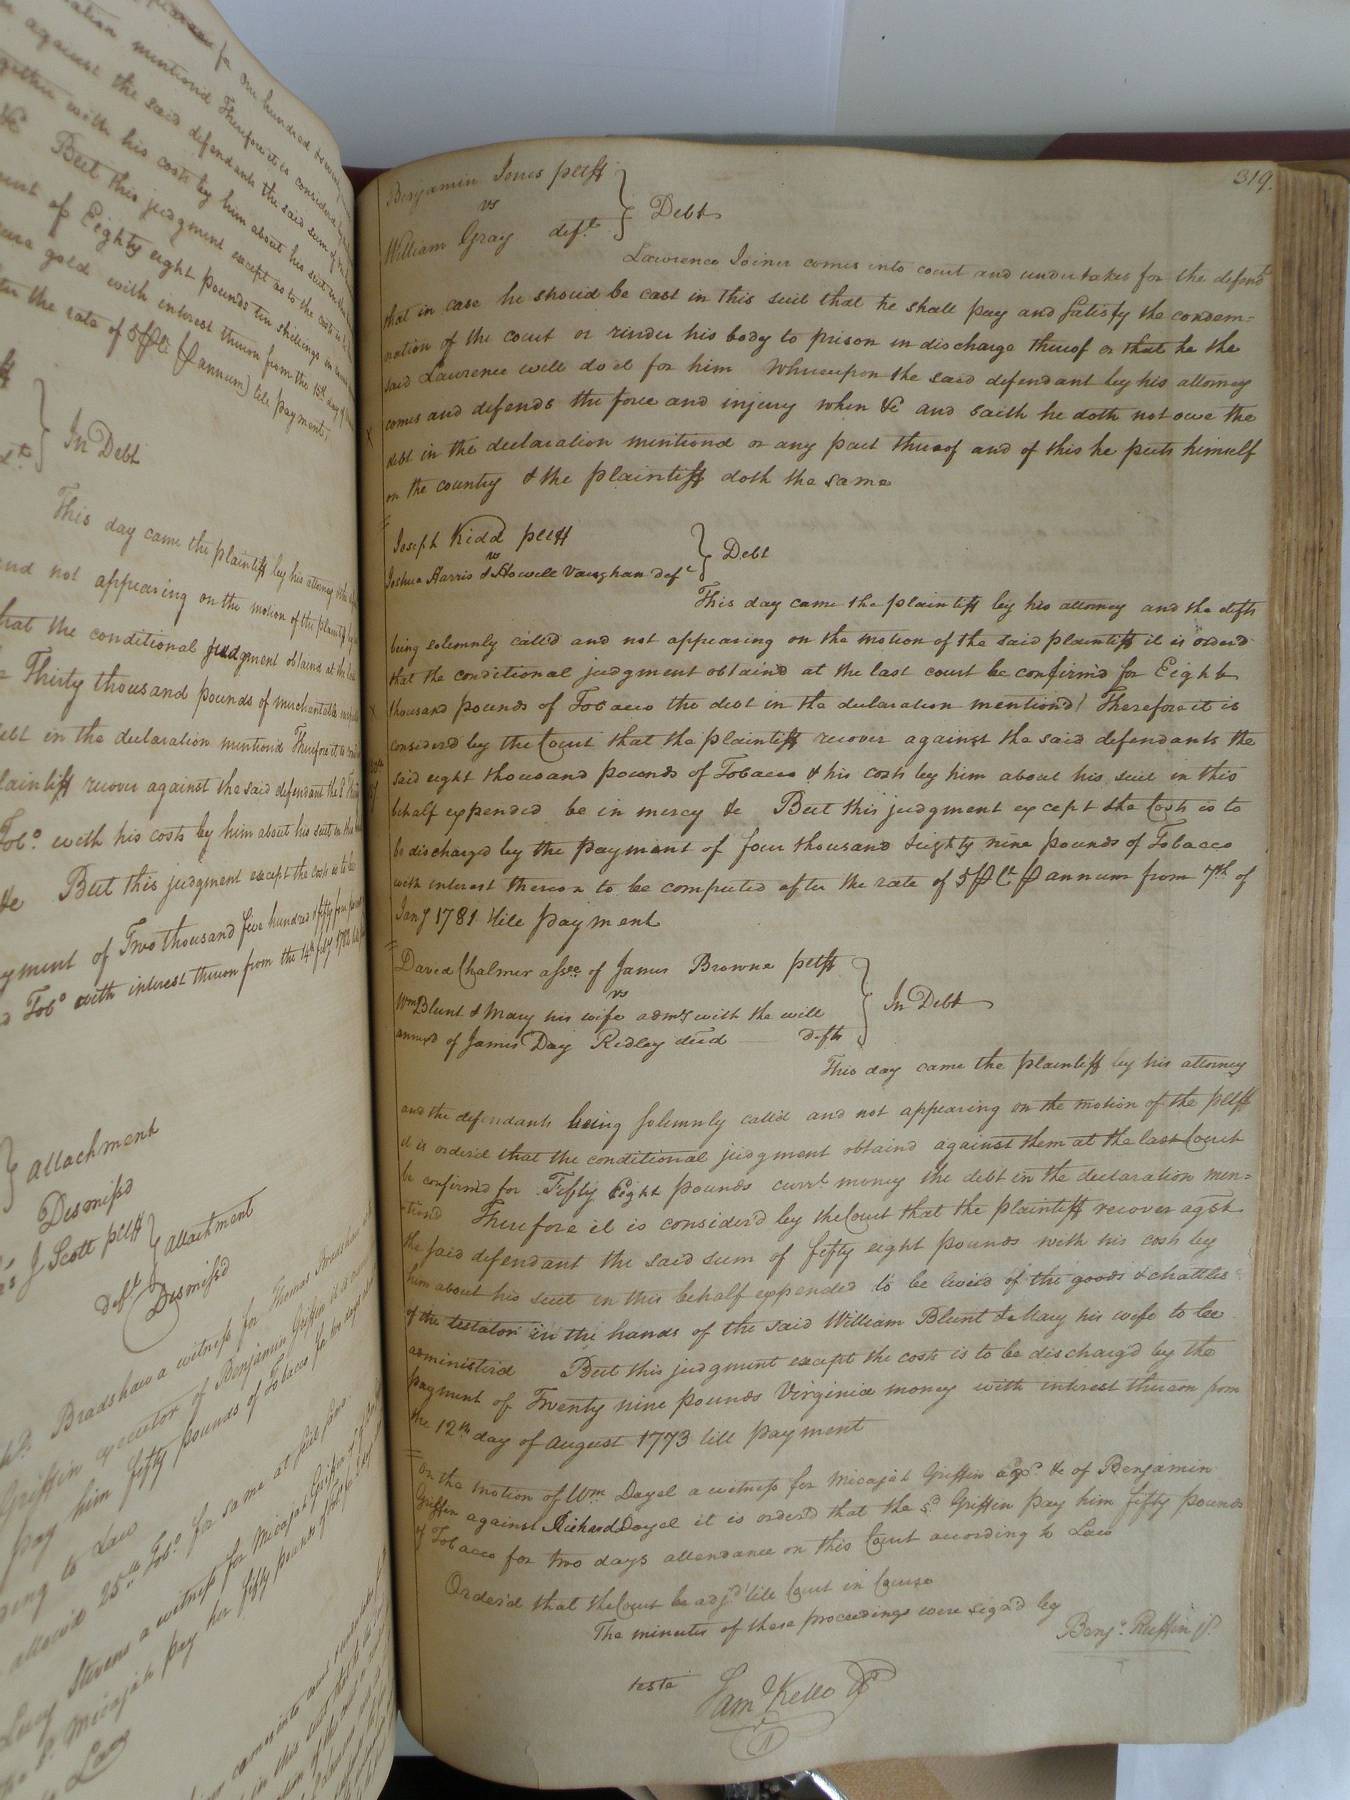 for One hundred & seventy
mention'd Therefore it is consider'd
against the said defendants the said sum of
together with his costs by him about his suit in this
&c But this judgment except as to the costs is
ment of Eighty eight pounds ten shillings in
gold with interest thereon from the 15th day of
the rate of 5 ₱ Ct ₱ annum) till payment
In Debt
This day came the plaintiff by his attorney & the
and not appearing on the motion of the plaintiff
that the conditional judgment obtain'd at the
Thirty thousand pounds of merchantable
debt in the declaration mention'd Therefore it is
plaintiff recover against the said defendant the
Tobo. with his costs by him about his suit in this
&c But this judgment except the costs is to be
payment of Two thousand five hundred & fifty four
Tobo with interest thereon from the 14th feby 1782
Attachment
Dismiss'd
J Scott pltff
Attachment
deft
Dismiss'd
Bradshaw a witness for Thomas
Griffin executor of Benjamin Griffin it is
pay him fifty pounds of Tobacco for two days
according to Law
allow'd 25 lb Tobo. for same at
Lucy Stevens a witness for Micajah Griffin
Micajah pay her fifty pounds of Tobo
Law
comes into court
319.
Benjamin Jones pltff
vs
William Gray deft
Debt
Lawrence Joiner comes into court and undertakes for the defend't
that in case he should be cast in this suit that he shall pay and satisfy the condem=
nation of the court or render his body to prison in discharge thereof or that he the
said Lawrence will do it for him Whereupon the said defendant by his attorney
comes and defends the force and injury when &c and saith he doth not owe the
debt in the declaration mentiond or any part thereof and of this he puts himself
on the country & the plaintiff doth the same
Joseph Kidd pltff
vs
Joshua Harris & Howell Vaughan deft
Debt
This day came the plaintiff by his attorney and the defts
being solemnly call'd and not appearing on the motion of the said plaintiff it is orderd
that the conditional judgment obtain'd at the last court be confirm'd for Eight
thousand pounds of Tobacco the debt in the declaration mention'd Therefore it is
consider'd by the Court that the plaintiff recover against the said defendants the
said eight thousand pounds of Tobacco & his costs by him about his suit in this
behalf expended be in mercy &c But this judgment except the Costs is to
be discharg'd by the payment of four thousand & eighty nine pounds of Tobacco
with interest thereon to be computed after the rate of 5 ₱ Ct ₱ annum from 7th of
Jany 1781 till payment
David Chalmer assee of James Browne pltff
vs
Wm Blunt & Mary his wife admrs with the will
annex'd of James Day Ridley dec'd defts
In Debt
This day came the plaintiff by his attorney
and the defendants being solemnly call'd and not appearing on the motion of the pltff
it is order'd that the conditional judgment obtaind against them at the last Court
be confirm'd for Fifty Eight pounds curr't money the debt in the declaration men=
=tiond Therefore it is consider'd by the Court that the plaintiff recover agst
the said defendant the said sum of fifty eight pounds with his costs by
him about his suit in this behalf expended to be levied of the goods & chattles
of the testator in the hands of the said William Blunt & Mary his wife to be
administer'd But this judgment except the costs is to be discharg'd by the
payment of Twenty nine pounds Virginia money with interest thereon from
the 12th day of August 1773 till payment
On the motion of Wm Dayel a witness for Micajah Griffin exor. &c of Benjamin
Griffin against Richard Dayel it is order'd that the sd. Griffin pay him fifty pounds
of Tobacco for two days attendance on this Court according to Law
Order'd that the Court be adj'd till Court in Course
The minutes of these proceedings were sign'd by
Benja. Ruffin Jr.
teste
Saml Kello